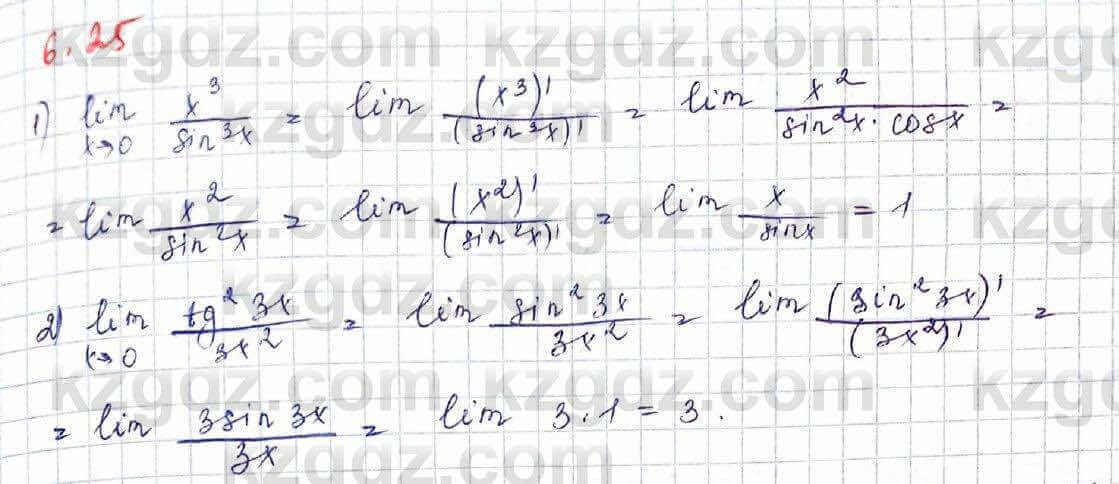 6.25
1) lim x→0 x³/sin³x = lim (x³)'/(sin³x)' = lim x²/(sin²x · cosx) =
= lim x²/sin²x = lim (x²)'/(sin²x)' = lim x/sinx = 1
2) lim x→0 tg²3x/3x² = lim sin²3x/3x² = lim (sin²3x)'/(3x²)' =
= lim 3sin3x/3x = lim 3·1 = 3.
kzgdz.com kzgdz.com kzgdz.com
kzgdz.com kzgdz.com kzgdz.com
kzgdz.com kzgdz.com kzgdz.com